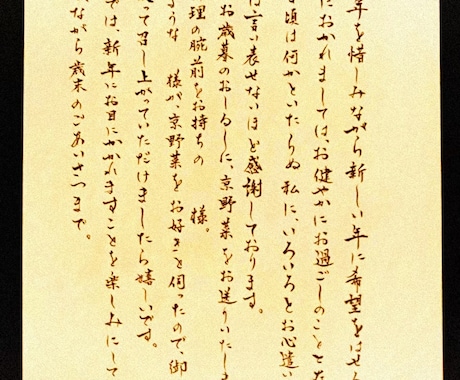 年を惜しみながら新しい年に希望をはせ
におかれましては、お健やかにお過ごしのことと
頃は何かといたらぬ私に、いろいろとお心遣い
は言い表せないほど感謝しております。
お歳暮のおしるしに、京野菜をお送りいたしま
理の腕前をお持ちの 様。
うな 様が、京野菜をお好きと伺ったので、御
って召し上がっていただけましたら嬉しいです。
では、新年にお目にかかれますことを楽しみにして
ながら歳末のごあいさつまで。